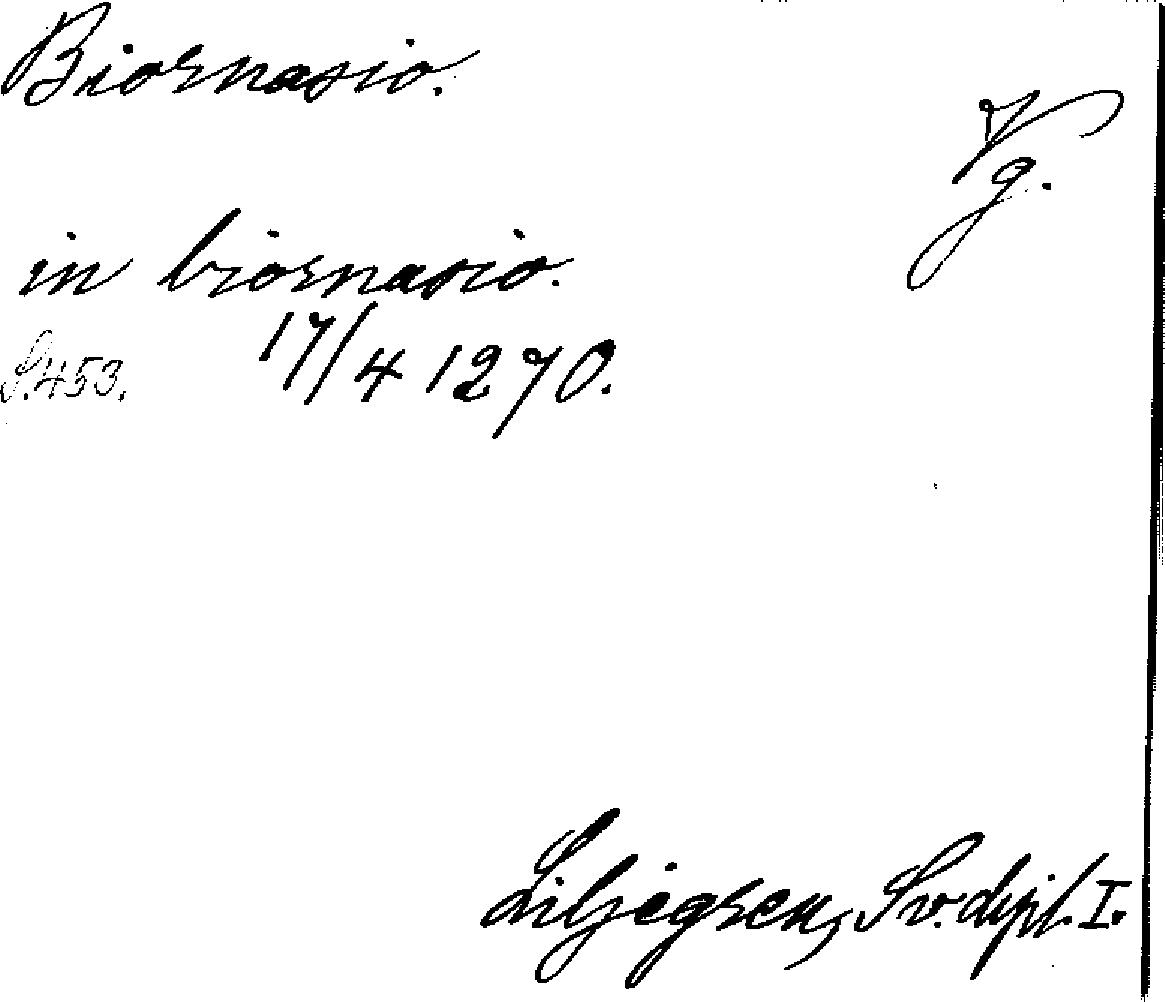 Biornasio.
Vg.
in biornasio.
S. 453. 17/4 1270.
Liljegren, Sv. dipl. I.